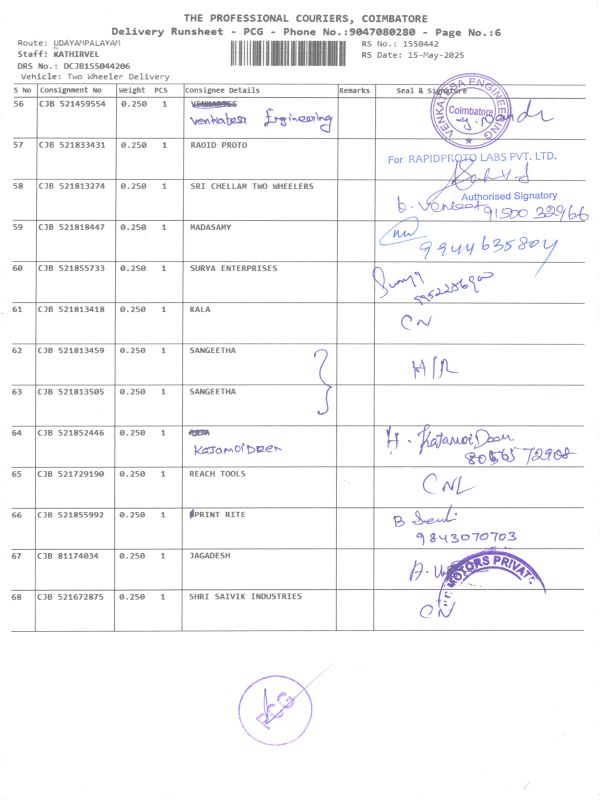 THE PROFESSIONAL COURIERS, COIMBATORE
Delivery Runsheet - PCG - Phone No.:9047080280 - Page No.:6
Route: UDAYAMPALAYAM RS No.: 1550442
Staff: KATHIRVEL RS Date: 15-May-2025
DRS No.: DCJB155044206
Vehicle: Two Wheeler Delivery
S No Consignment No Weight PCS Consignee Details Remarks Seal & Signature
56 CJB 521459554 0.250 1
Venkatesa Engineering
VENKATESA ENGINEERING
Coimbatore
57 CJB 521833431 0.250 1 RAOID PROTO
For RAPIDPROTO LABS PVT. LTD.
Authorised Signatory
58 CJB 521813274 0.250 1 SRI CHELLAM TWO WHEELERS
91500 32966
59 CJB 521818447 0.250 1 MADASAMY
9944635804
60 CJB 521855733 0.250 1 SURYA ENTERPRISES
61 CJB 521813418 0.250 1 KALA CN
62 CJB 521813459 0.250 1 SANGEETHA H/R
63 CJB 521813505 0.250 1 SANGEETHA
64 CJB 521852446 0.250 1
KAJAMOIDEEN
H. KajamoiDeen
80565 72908
65 CJB 521729190 0.250 1 REACH TOOLS CNL
66 CJB 521855992 0.250 1 PRINT RITE
9843070703
67 CJB 81174034 0.250 1 JAGADESH
MOTORS PRIVATE
68 CJB 521672875 0.250 1 SHRI SAIVIK INDUSTRIES CN
PCG